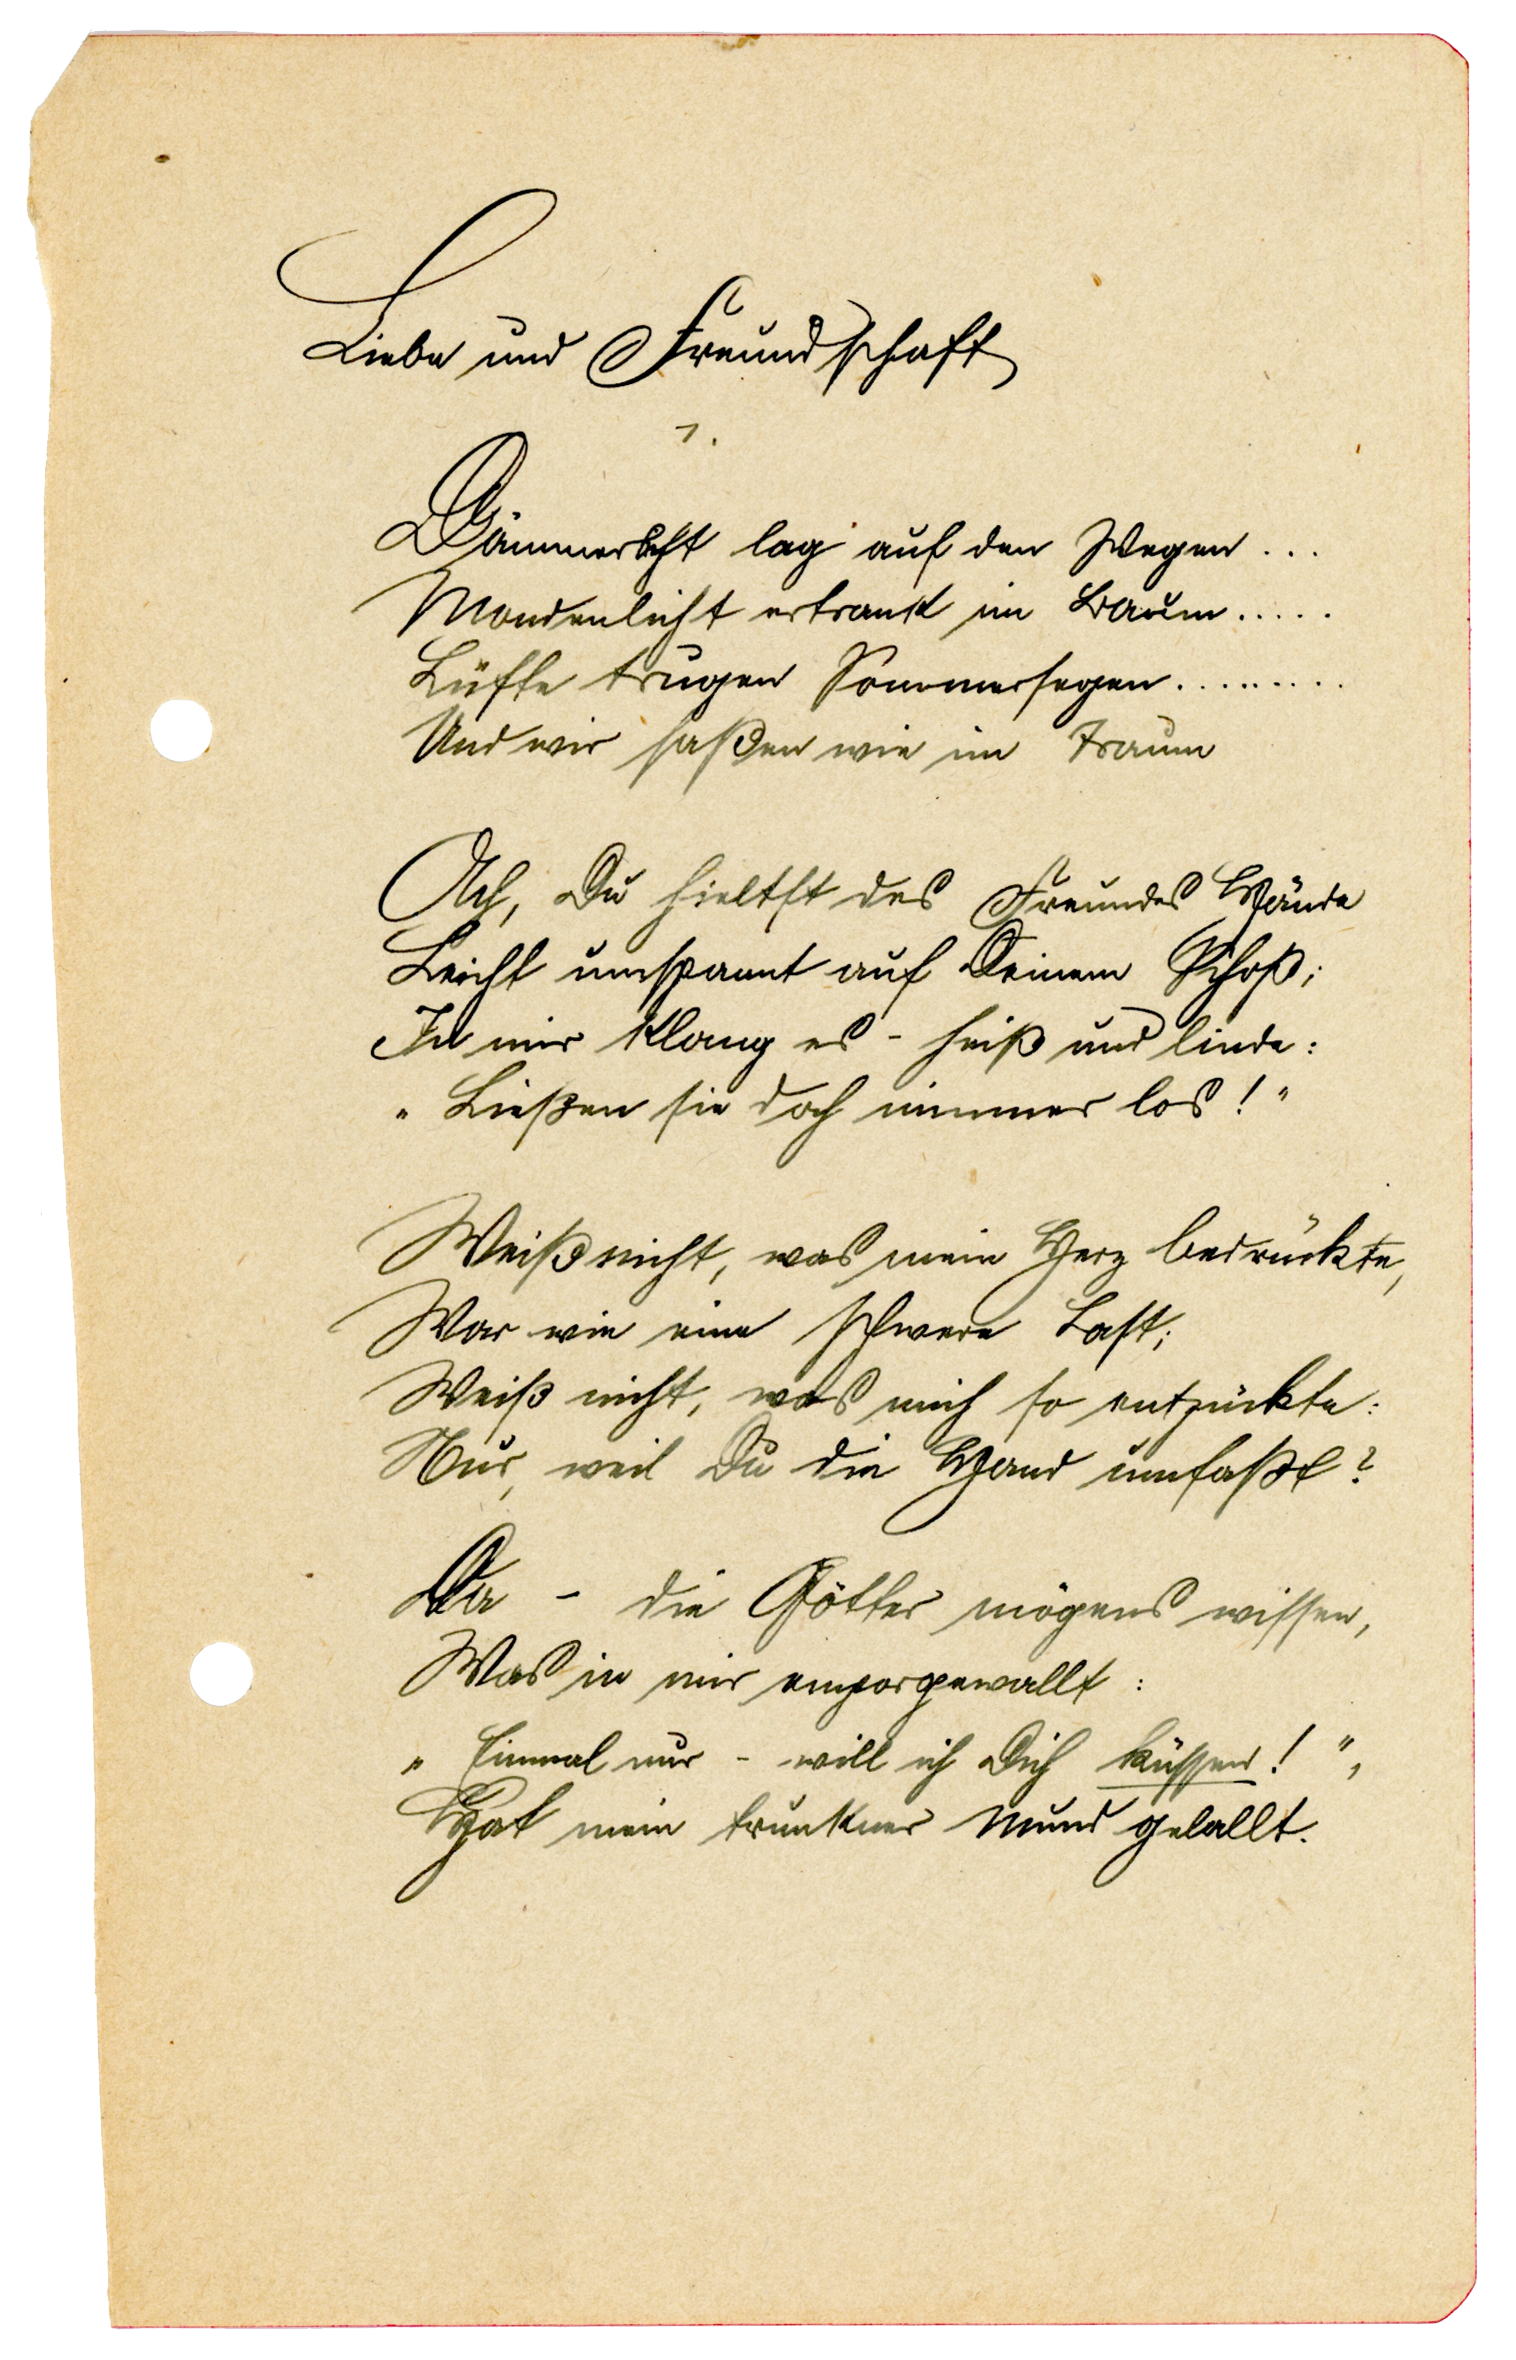 Liebe und Freundschaft
1.
Dämmerlicht lag auf den Wegen ...
Mondenlicht ertrank im Baum .....
Lüfte trugen Sommersegen .........
Und wir saßen wie im Traum
Ach, Du hieltst des Freundes Hände
Leicht umspannt auf Deinem Schoß;
In mir klang es - heiß und linde:
„Ließen sie doch nimmer los!"
Weiß nicht, was mein Herz bedrückte,
War wie eine schwere Last;
Weiß nicht, was mich so entzückte:
Nur, weil Du die Hand umfaßt?
Da - die Götter mögens wissen,
Was in mir emporgewallt:
„Einmal nur - will ich Dich küssen!",
Hat mein trunkner Mund gelallt.